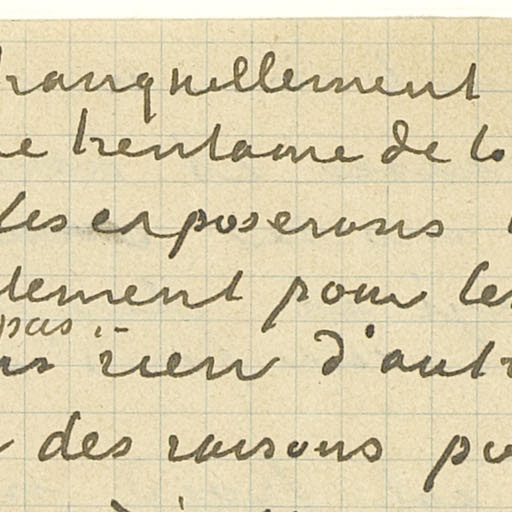 tranquillement
trentaine de to
les exposerons
lement pour les
pas
rien d'autr
des raisons po